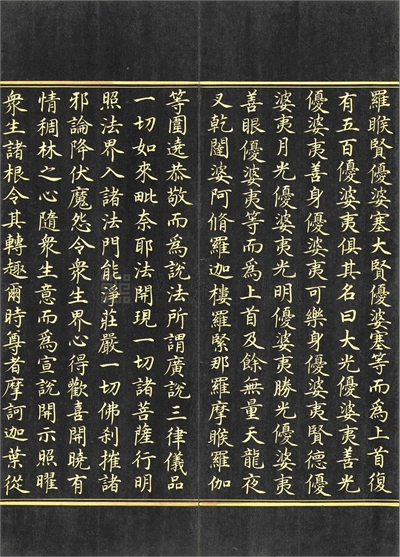 羅睺賢優婆塞大賢優婆塞等而為上首復
有五百優婆夷俱其名曰大光優婆夷善光
優婆夷善身優婆夷可樂身優婆夷賢德優
婆夷月光優婆夷光明優婆夷勝光優婆夷
善眼優婆夷等而為上首及餘無量天龍夜
叉乾闥婆阿脩羅迦樓羅緊那羅摩睺羅伽
等圍遶恭敬而為說法所謂廣說三律儀品
一切如來毗奈耶法開現一切諸菩薩行明
照法界入諸法門能淨莊嚴一切佛刹摧諸
邪論降伏魔怨令衆生界心得歡喜開曉有
情稠林之心隨衆生意而為宣說開示照曜
衆生諸根令其轉趣爾時尊者摩訶迦葉從